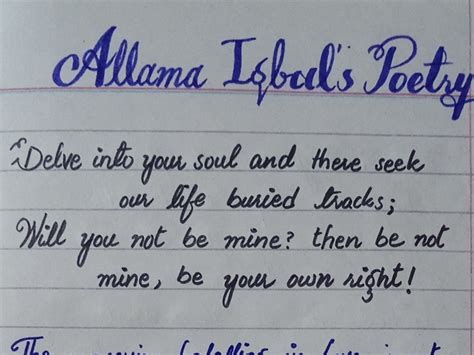 Allama Iqbal's Poetry
Delve into your soul and there seek
our life buried tracks;
Will you not be mine? then be not
mine, be your own right!
The